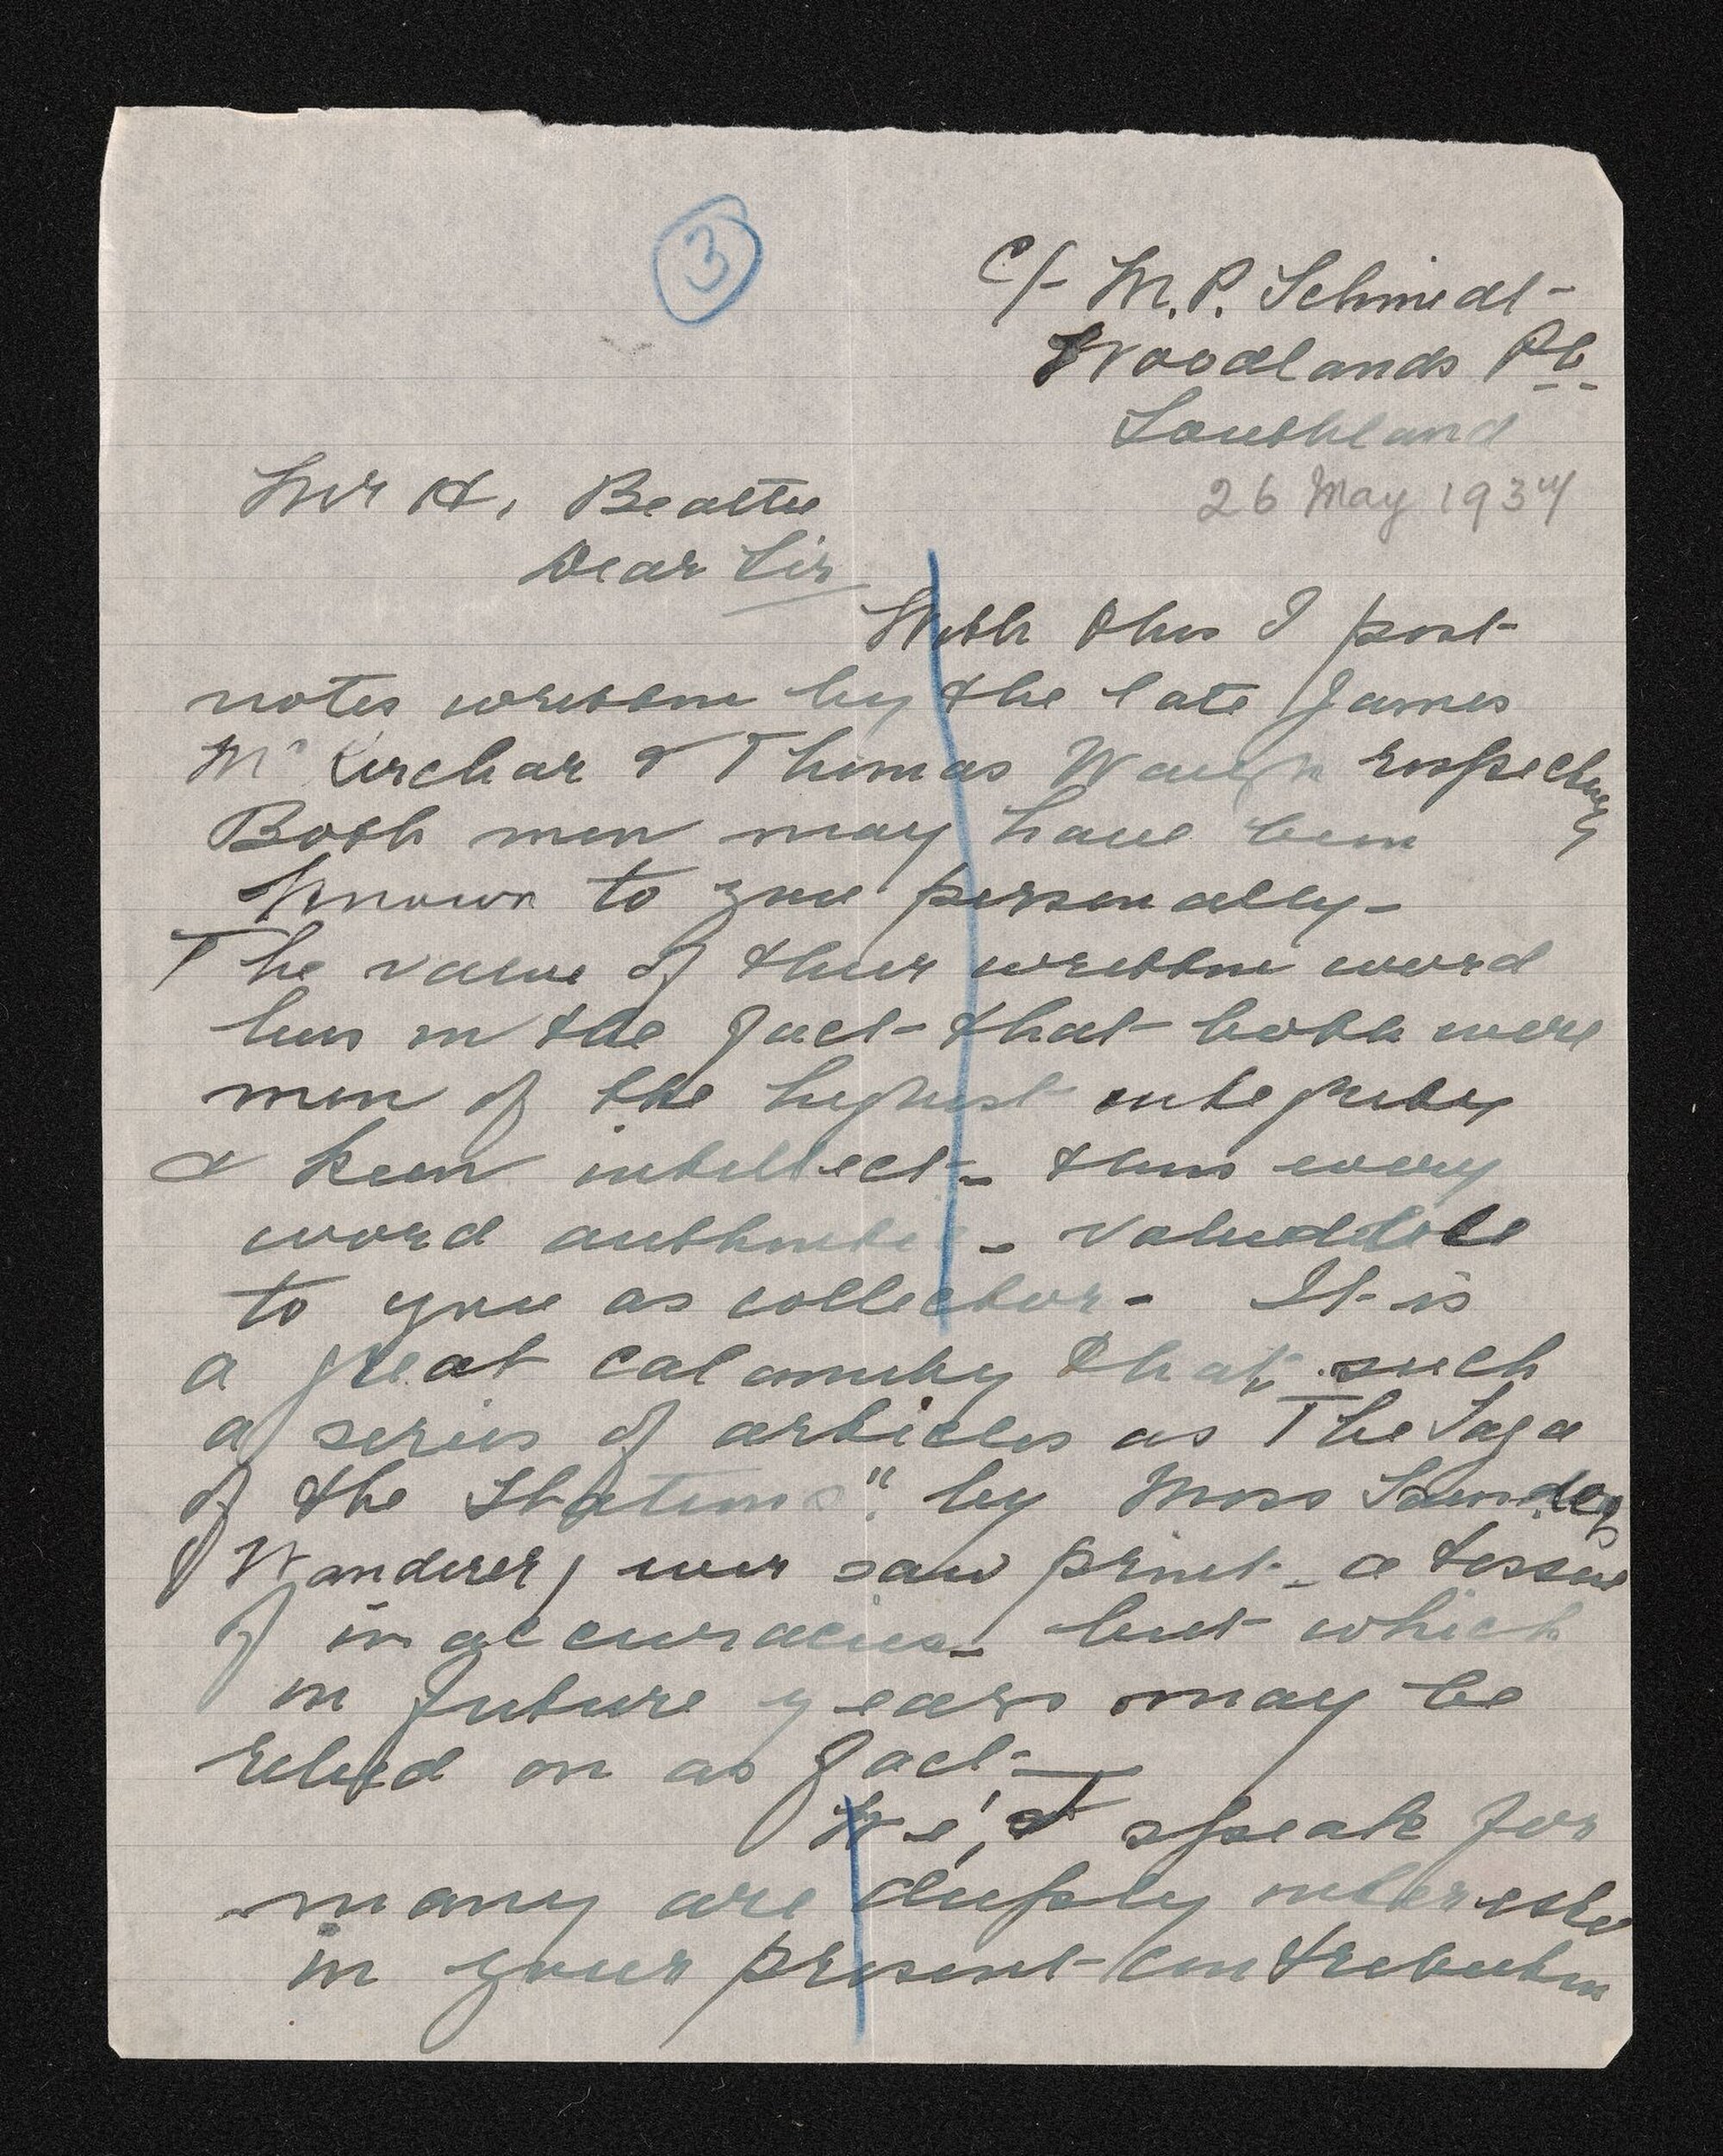 3
c/- M.P. Schmidt-
Woodlands Pt
Southland
26 May 1934
Mr H. Beattie
Dear Sir
With this I post
notes written by the late James
Mc Kerchar & Thomas Waugh respectively
Both men may have been
known to you personally-
The value of their written word
lies in the fact that both were
men of the highest integrity
& keen intellect- thus every
word authentic - valuable
to you as collector- It is
a great calamity that such
a series of articles as The Saga
of the Stations". by Moss
Wanderer) ever saw print - a tissue
of inaccuracies- but which
in future years may be
relied on as fact-
We, & I speak for
many are deeply interested
in your present contribution